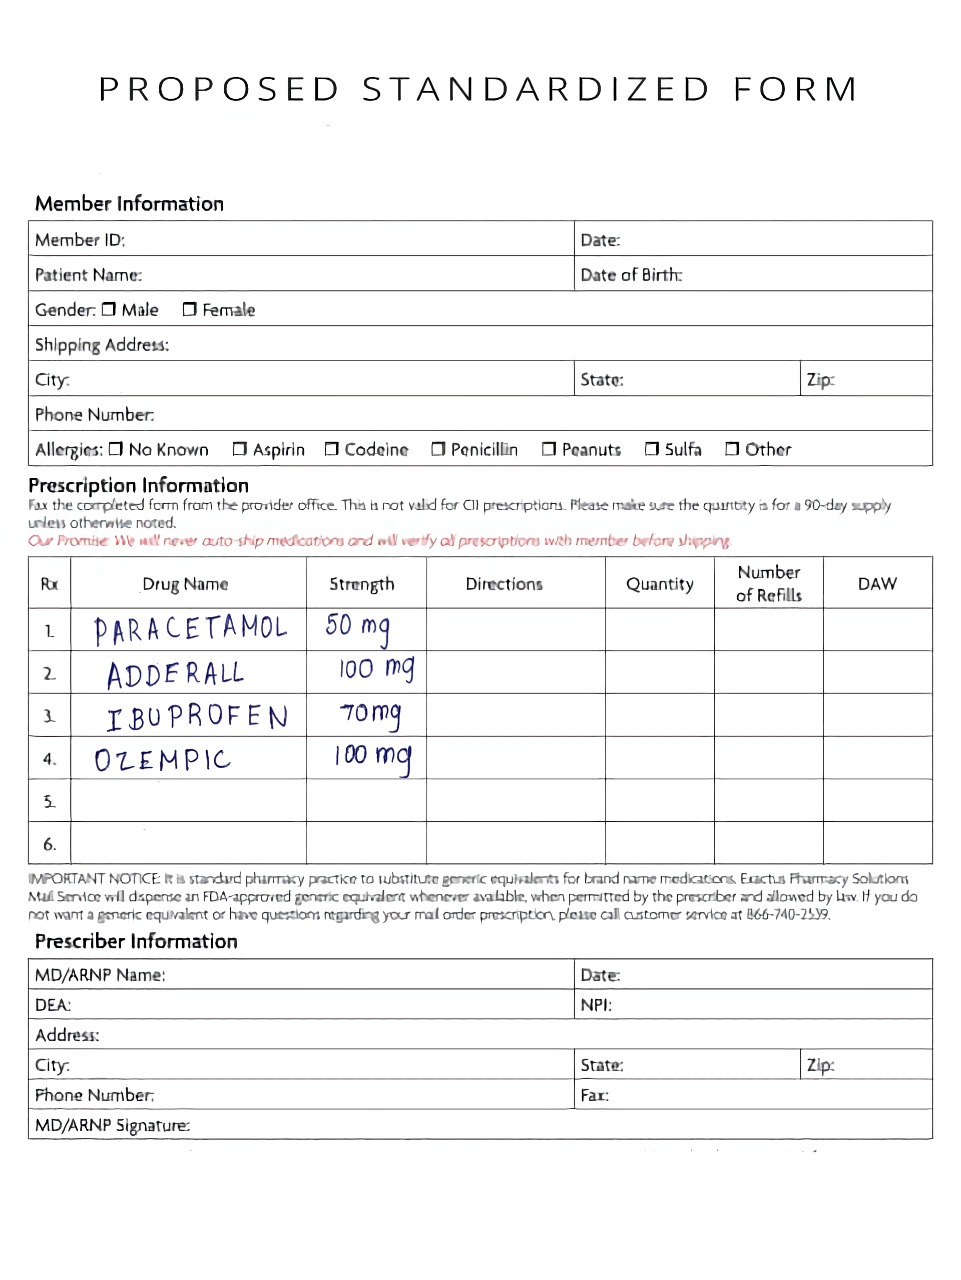 PROPOSED STANDARDIZED FORM
Member Information
Member ID: Date:
Patient Name: Date of Birth:
Gender: ☐ Male ☐ Female
Shipping Address:
City: State: Zip:
Phone Number:
Allergies: ☐ No Known ☐ Aspirin ☐ Codeine ☐ Penicillin ☐ Peanuts ☐ Sulfa ☐ Other
Prescription Information
Fax the completed form from the provider office. This is not valid for CII prescriptions. Please make sure the quantity is for a 90-day supply
unless otherwise noted.
Our Promise: We will never auto-ship medications and will verify all prescriptions with member before shipping.
Rx Drug Name Strength Directions Quantity Number of Refills DAW
1. PARACETAMOL 50 mg
2. ADDERALL 100 mg
3. IBUPROFEN 70mg
4. OZEMPIC 100 mg
5.
6.
IMPORTANT NOTICE: It is standard pharmacy practice to substitute generic equivalents for brand name medications. Exactus Pharmacy Solutions
Mail Service will dispense an FDA-approved generic equivalent whenever available, when permitted by the prescriber and allowed by law. If you do
not want a generic equivalent or have questions regarding your mail order prescription, please call customer service at 866-740-2539.
Prescriber Information
MD/ARNP Name: Date:
DEA: NPI:
Address:
City: State: Zip:
Phone Number: Fax:
MD/ARNP Signature: